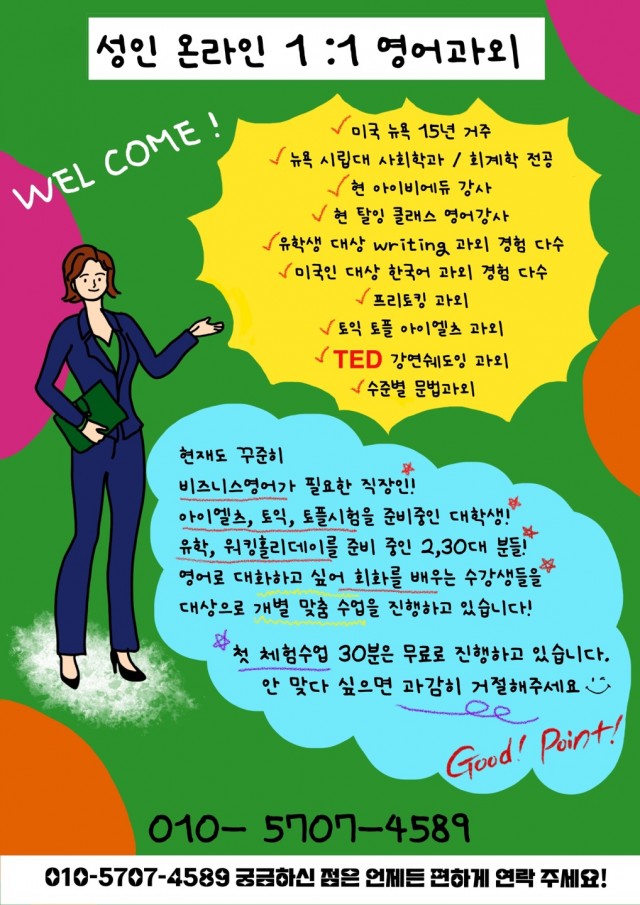 성인 온라인 1:1 영어과외
WELCOME!
미국 뉴욕 15년 거주
뉴욕 시립대 사회학과 / 회계학 전공
현 아이비에듀 강사
현 탈잉 클래스 영어강사
유학생 대상 writing 과외 경험 다수
미국인 대상 한국어 과외 경험 다수
프리토킹 과외
토익 토플 아이엘츠 과외
TED 강연쉐도잉 과외
수준별 문법과외
현재도 꾸준히
비즈니스영어가 필요한 직장인!
아이엘츠, 토익, 토플시험을 준비중인 대학생!
유학, 워킹홀리데이를 준비 중인 2,30대 분들!
영어로 대화하고 싶어 회화를 배우는 수강생들을
대상으로 개별 맞춤 수업을 진행하고 있습니다!
첫 체험수업 30분은 무료로 진행하고 있습니다.
안 맞다 싶으면 과감히 거절해주세요
Good! Point!
010- 5707-4589
010-5707-4589 궁금하신 점은 언제든 편하게 연락 주세요!